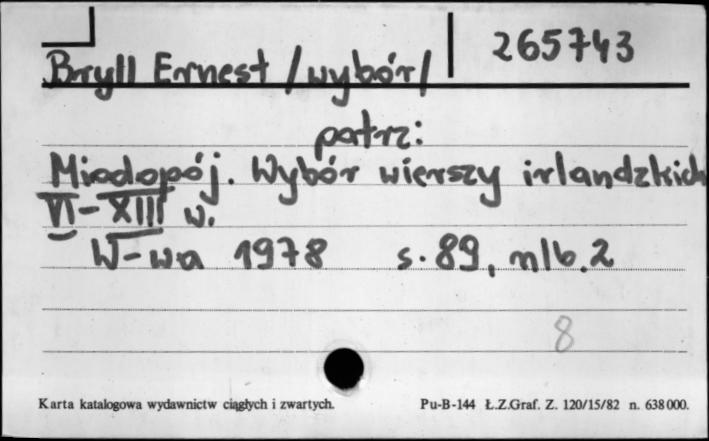 Bryll Ernest /wybór/ 265743
patrz:
Miodopój. Wybór wierszy irlandzkich
VI-XIII w.
W-wa 1978 s. 89, nlb. 2
8
Karta katalogowa wydawnictw ciągłych i zwartych. Pu-B-144 Ł.Z.Graf. Z. 120/15/82 n. 638000.